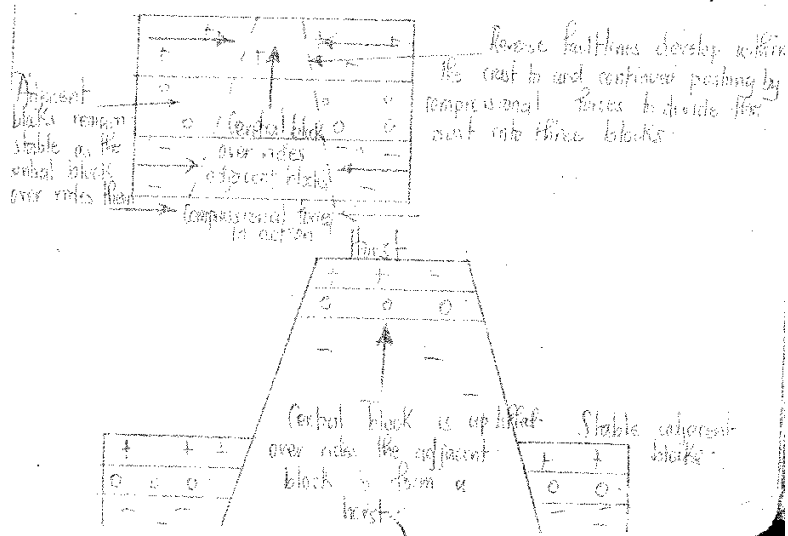 Reverse faultlines develop within
the crust to and continued pushing by
compressional forces to divide the
crust into three blocks.
Adjacent
blocks remain
stable as the
central block
over rides them
Central block
over rides
adjacent blocks
Compressional forces
in action
Horst
Central block is uplifted
over rides the adjacent
block to form a
horst.
Stable
blocks